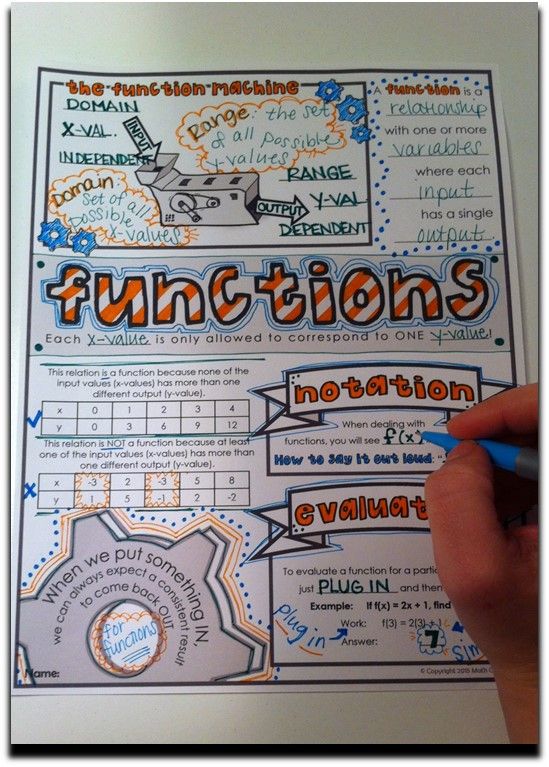 the function machine
DOMAIN
X-VAL.
INDEPENDENT
INPUT
Range: the set
of all possible
y-values
RANGE
Y-VAL
DEPENDENT
OUTPUT
Domain:
set of all
possible
x-values
A function is a
relationship
with one or more
variables
where each
input
has a single
output.
functions
Each x-value is only allowed to correspond to ONE y-value!
This relation is a function because none of the
input values (x-values) has more than one
different output (y-value).
x 0 1 2 3 4
y 0 3 6 9 12
This relation is NOT a function because at least
one of the input values (x-values) has more than
one different output (y-value).
x -3 2 -3 5 8
y 1 5 -1 2 -2
notation
When dealing with
functions, you will see f(x)
How to say it out loud: "
evaluat
To evaluate a function for a partic
just PLUG IN and then
Example: If f(x) = 2x + 1, find
plug in
Work: f(3) = 2(3) + 1
Answer: 7
sim
When we put something IN,
we can always expect a consistent result
to come back OUT
for
functions
Name:
© Copyright 2015 Math